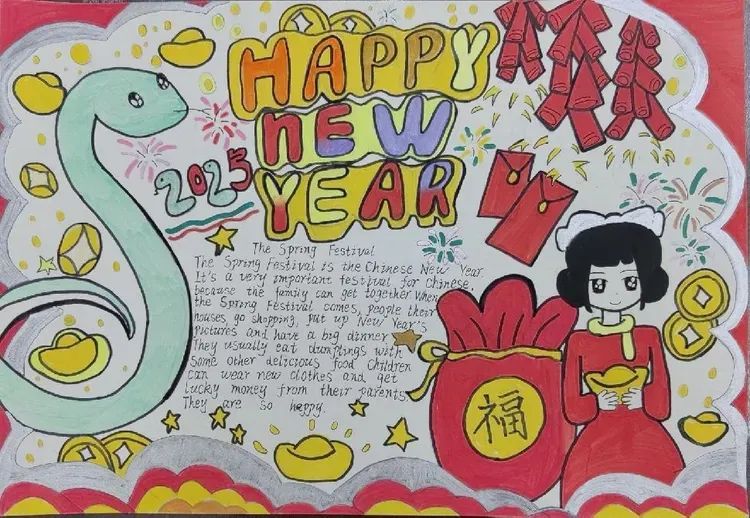 HAPPY
NEW
YEAR
2025
The Spring Festival
The Spring Festival is the Chinese New Year.
It's a very important festival for Chinese,
because the family can get together When
the Spring Festival comes, people their
houses, go shopping, put up New Year's
pictures and have a big dinner
They usually eat dumplings with
Some other delicious food Children
can wear new clothes and get
lucky money from their parents
They are so happy.
福